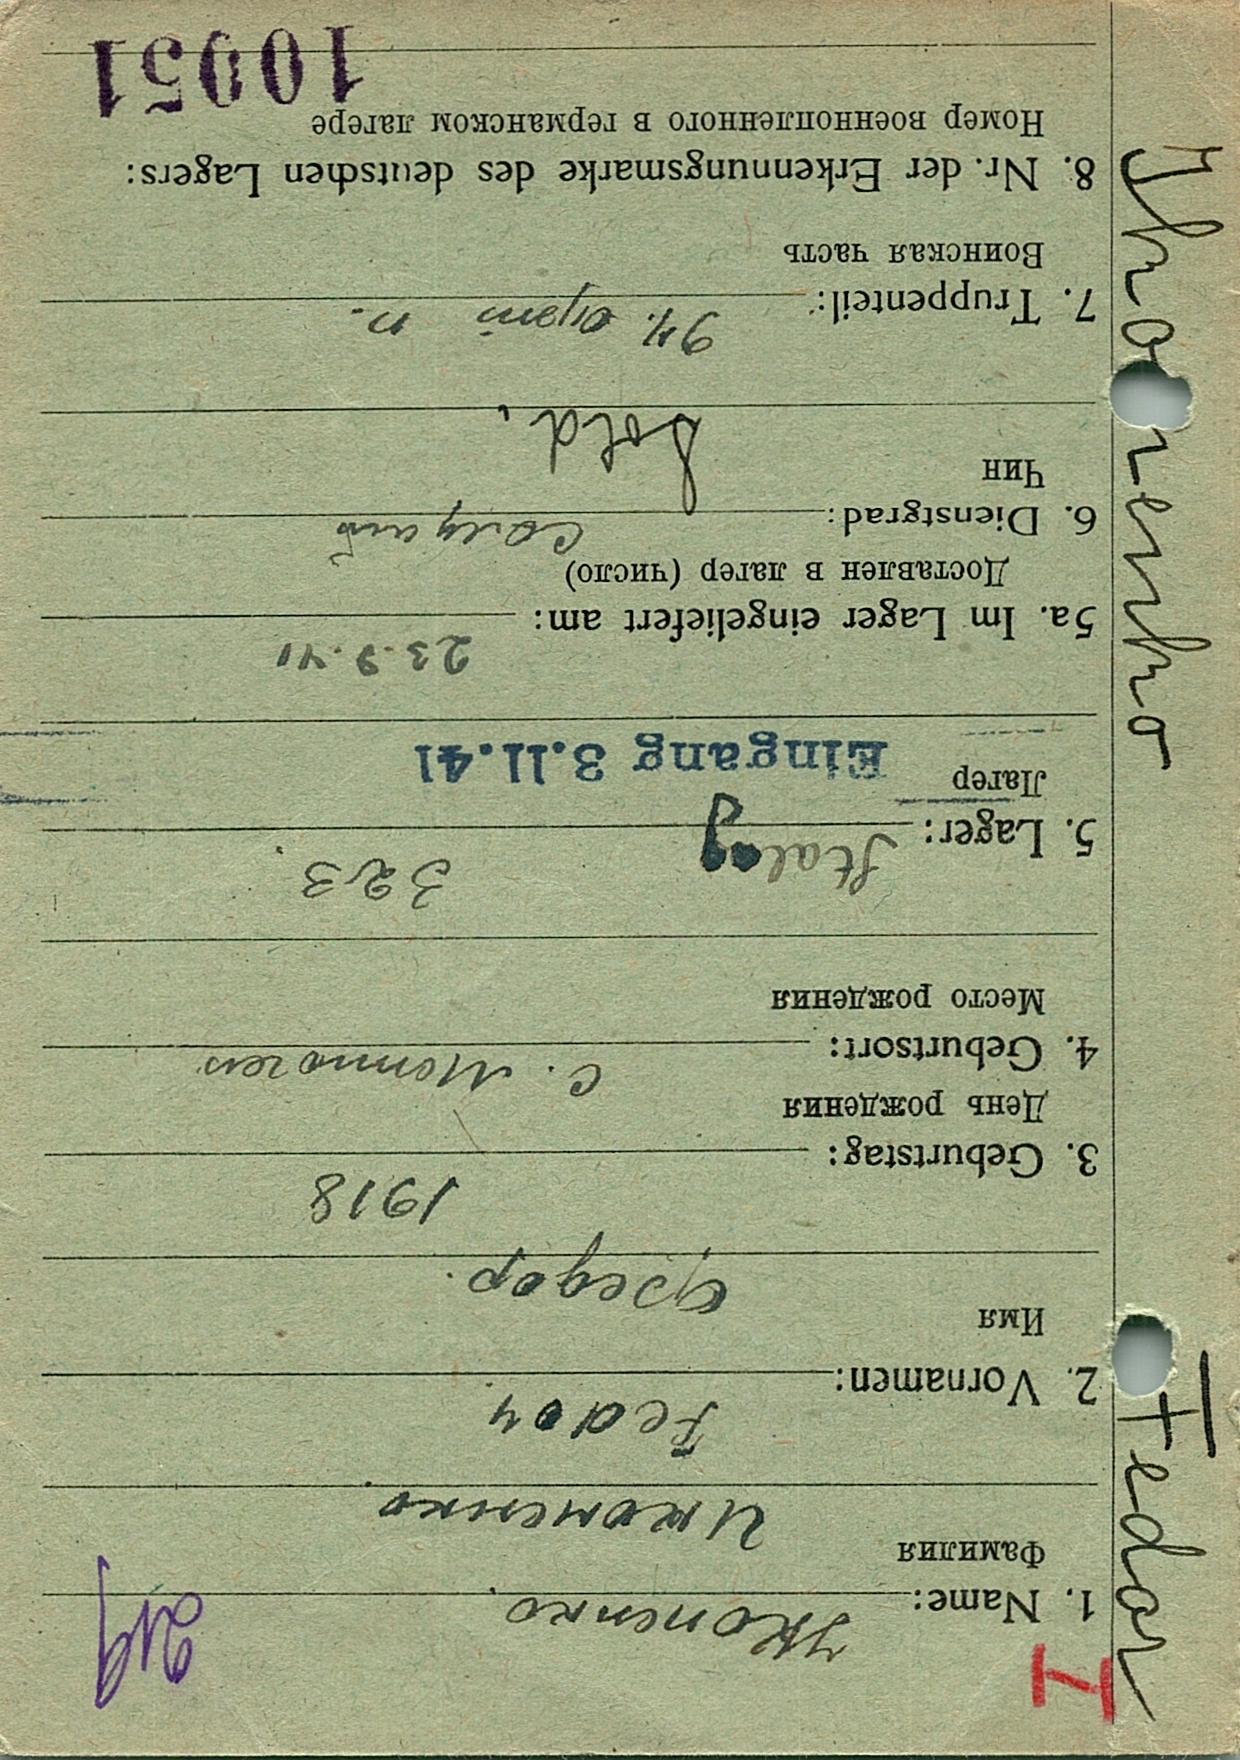 I
219
1. Name: Ikonenko
Фамилия
Икоменко
2. Vornamen: Fedor
Имя
Федор.
3. Geburtstag: 1918
День рождения
4. Geburtsort: с.
Место рождения
5. Lager: Stalag 323
Лагер
Eingang 3.11.41
5a. Im Lager eingeliefert am: 23.9.41
Доставлен в лагер (число)
6. Dienstgrad: Солдат
Чин
Sold.
7. Truppenteil: п.
Воинская часть
8. Nr. der Erkennungsmarke des deutschen Lagers:
Номер военнопленного в германском лагере
10951
Fedor Ikonenko